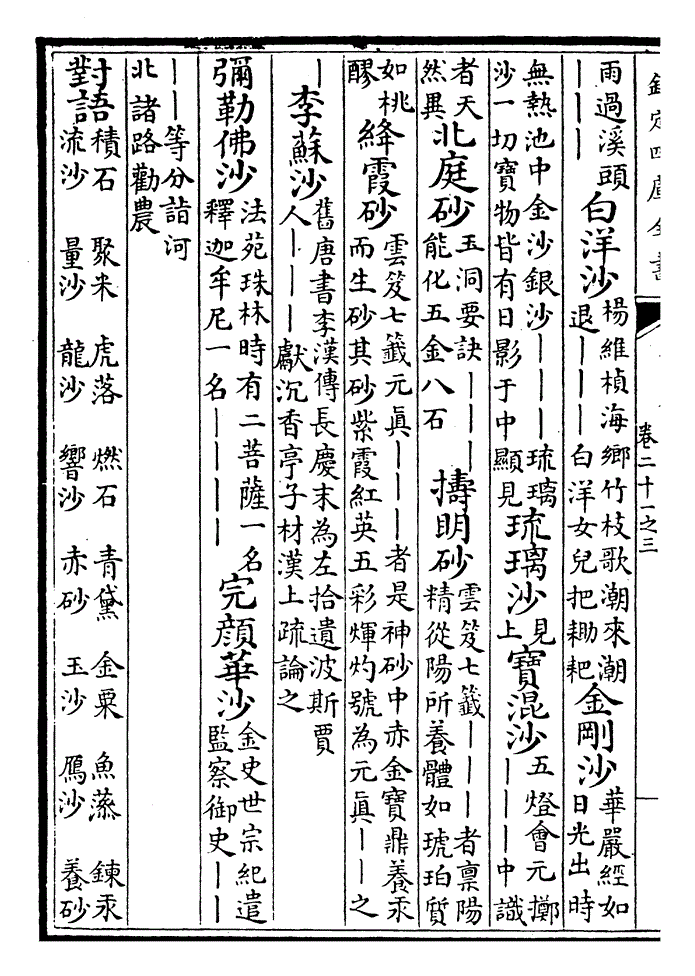 欽定四庫全書 卷二十一之三
雨過溪頭｜｜｜白洋沙楊維楨海鄉竹枝歌潮來潮退｜｜｜白洋女兒把耡耙金剛沙華嚴經如日光出時
無熱池中金沙銀沙｜｜｜｜琉璃沙一切寶物皆有日影于中顯見琉璃沙見上寶混沙五燈會元擲｜｜｜中識
者天然異北庭砂玉洞要訣｜｜｜能化五金八石擣明砂雲笈七籤｜｜｜者禀陽精從陽所養體如琥珀質
如桃醪絳霞砂雲笈七籤元眞｜｜｜者是神砂中赤金寶鼎養汞而生砂其砂紫霞紅英五彩輝灼號為元眞｜｜之
｜李蘇沙舊唐書李漢傳長慶末為左拾遺波斯賈人｜｜｜獻沉香亭子材漢上疏論之
彌勒佛沙法苑珠林時有二菩薩一名釋迦牟尼一名｜｜｜｜完顏華沙金史世宗紀遣監察御史｜｜
｜｜等分詣河北諸路勸農
對語積石流沙 聚米量沙 虎落龍沙 燃石響沙 青黛赤砂 金粟玉沙 魚鴈沙 鍊汞養砂